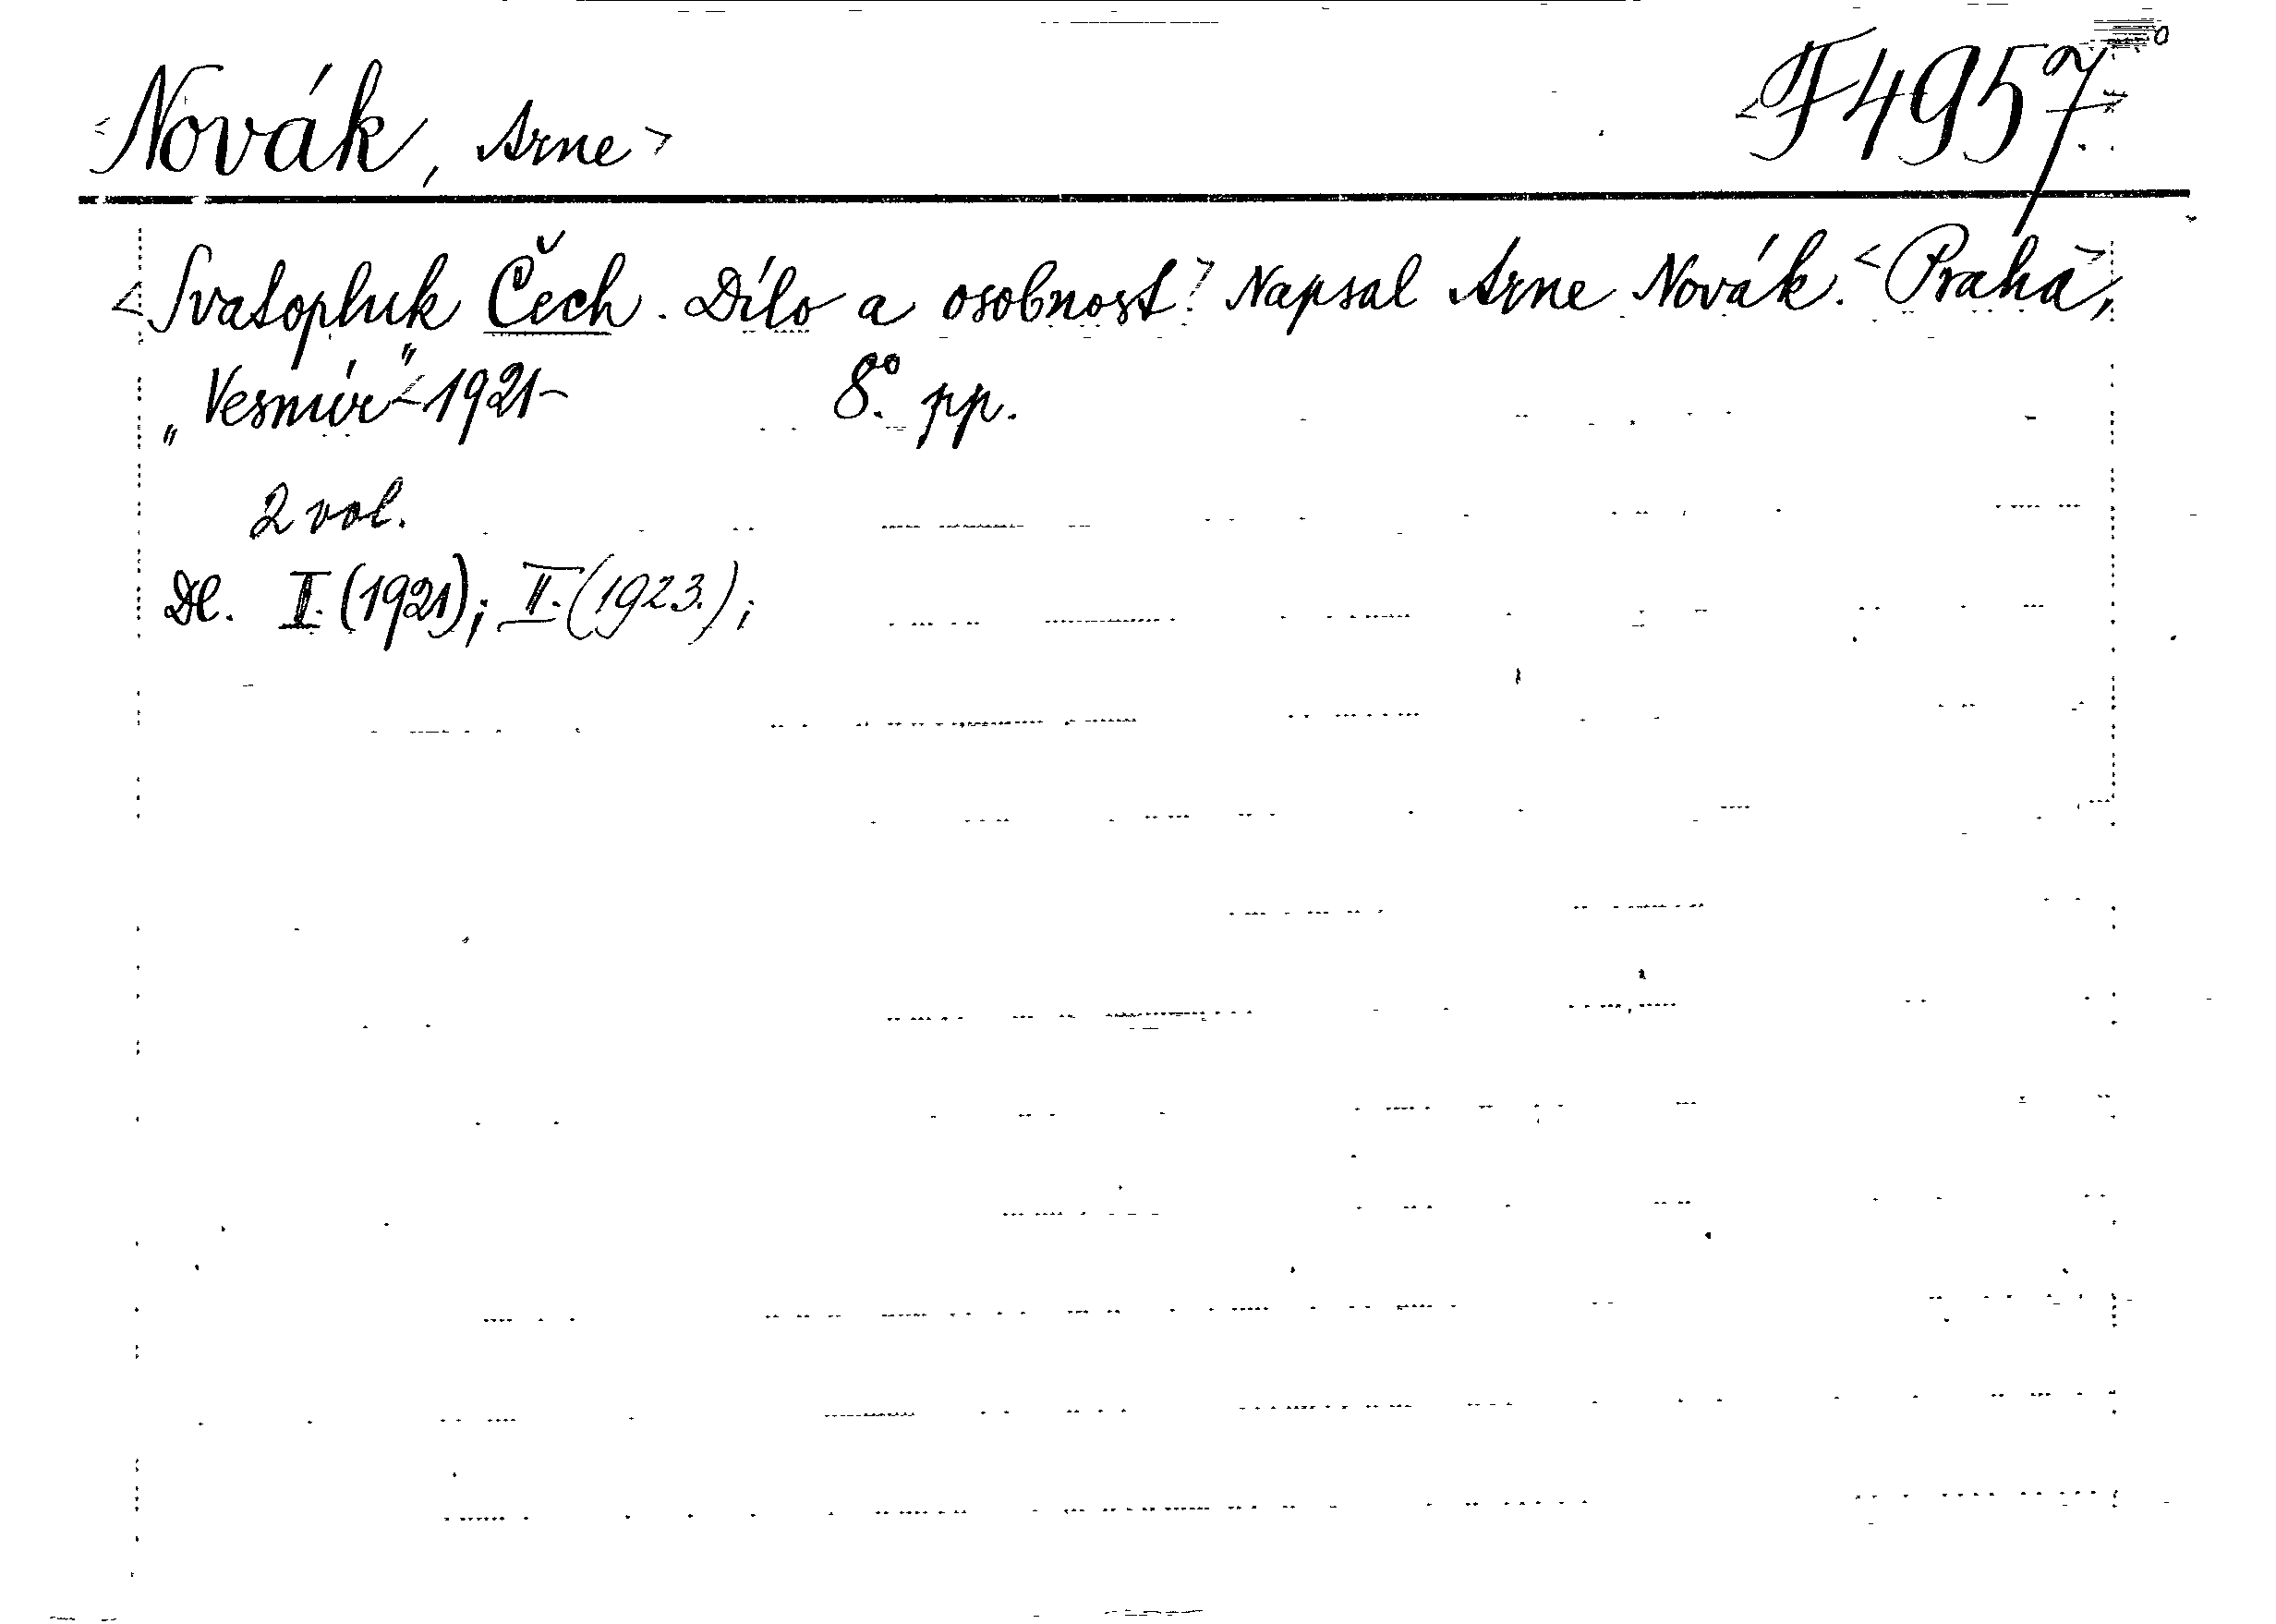 <Novák, Arne> <F 4957.>
<Svatopluk Čech. Dílo a osobnost.> Napsal Arne Novák. <Praha>,
„Vesmír" <1921- 8°. pp.
2 vol.
Dl. I. (1921); II. (1923.);